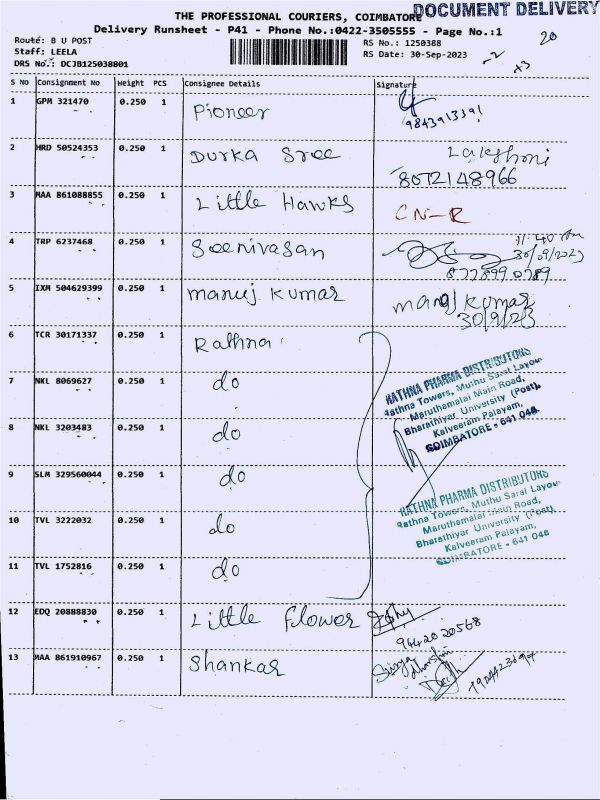 DOCUMENT DELIVERY
THE PROFESSIONAL COURIERS, COIMBATORE
Delivery Runsheet - P41 - Phone No.:0422-3505555 - Page No.:1
Route: B U POST
RS No.: 1250388
20
Staff: LEELA
RS Date: 30-Sep-2023
-2
DRS No.: DCJB125038801
x3
S No Consignment No Weight PCS Consignee Details Signature
1 GPM 321470 0.250 1 Pioneer
9843913391
2 HRD 50524353 0.250 1 Durka Sree Lakshmi
8072148966
3 MAA 861088855 0.250 1 Little Hawks CN-R
4 TRP 6237468 0.250 1 Seenivasan 11:40 Am
30/09/2023
8778990789
5 IXM 504629399 0.250 1 manuj kumar manoj kumar
30/9/23
6 TCR 30171337 0.250 1 Rathna
7 NKL 8069627 0.250 1 do
8 NKL 3203483 0.250 1 do
9 SLM 329560044 0.250 1 do
10 TVL 3222032 0.250 1 do
11 TVL 1752816 0.250 1 do
RATHNA PHARMA DISTRIBUTORS
Rathna Towers, Muthu Sarai Layout
Maruthamalai Main Road,
Bharathiyar University (Post),
Kalveeram Palayam,
COIMBATORE - 641 046.
RATHNA PHARMA DISTRIBUTORS
Rathna Towers, Muthu Sarai Layout
Maruthamalai Main Road,
Bharathiyar University (Post),
Kalveeram Palayam,
COIMBATORE - 641 046
12 EDQ 20888830 0.250 1 Little flower
9442020568
13 MAA 861910967 0.250 1 Shankar Surya